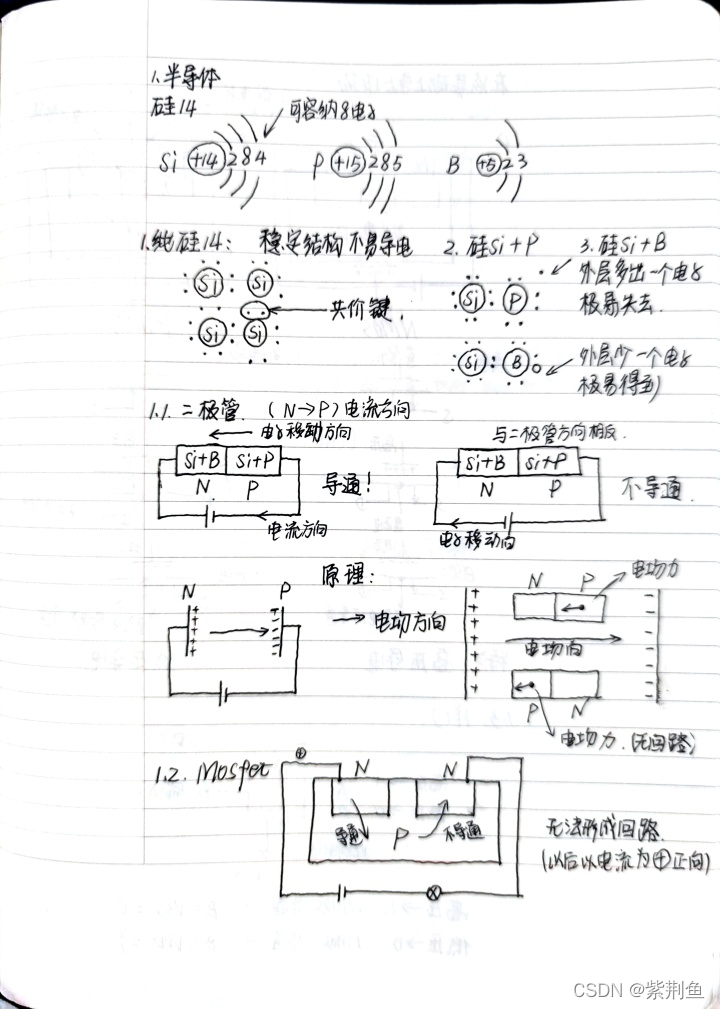 1.半导体
硅14
可容纳8电子
Si +14 2 8 4
P +15 2 8 5
B +5 2 3
1.纯硅14: 稳定结构 不易导电
2.硅Si+P
3.硅Si+B
Si Si
Si Si
共价键
Si P
外层多出一个电子
极易失去
Si B
外层少一个电子
极易得到
1.1.二极管. (N→P)电流方向
电子移动方向
Si+B Si+P
N P
导通!
电流方向
与二极管方向相反.
Si+B Si+P
N P
不导通.
电子移动向
原理:
N P
+ -
→ 电场方向
N P
电场力
电场向
P N
电场力.(无回路)
+ -
1.2. Mosfet
+
N N
导通 P 不导通
无法形成回路.
(以后以电流为+正向)
CSDN @紫荆鱼